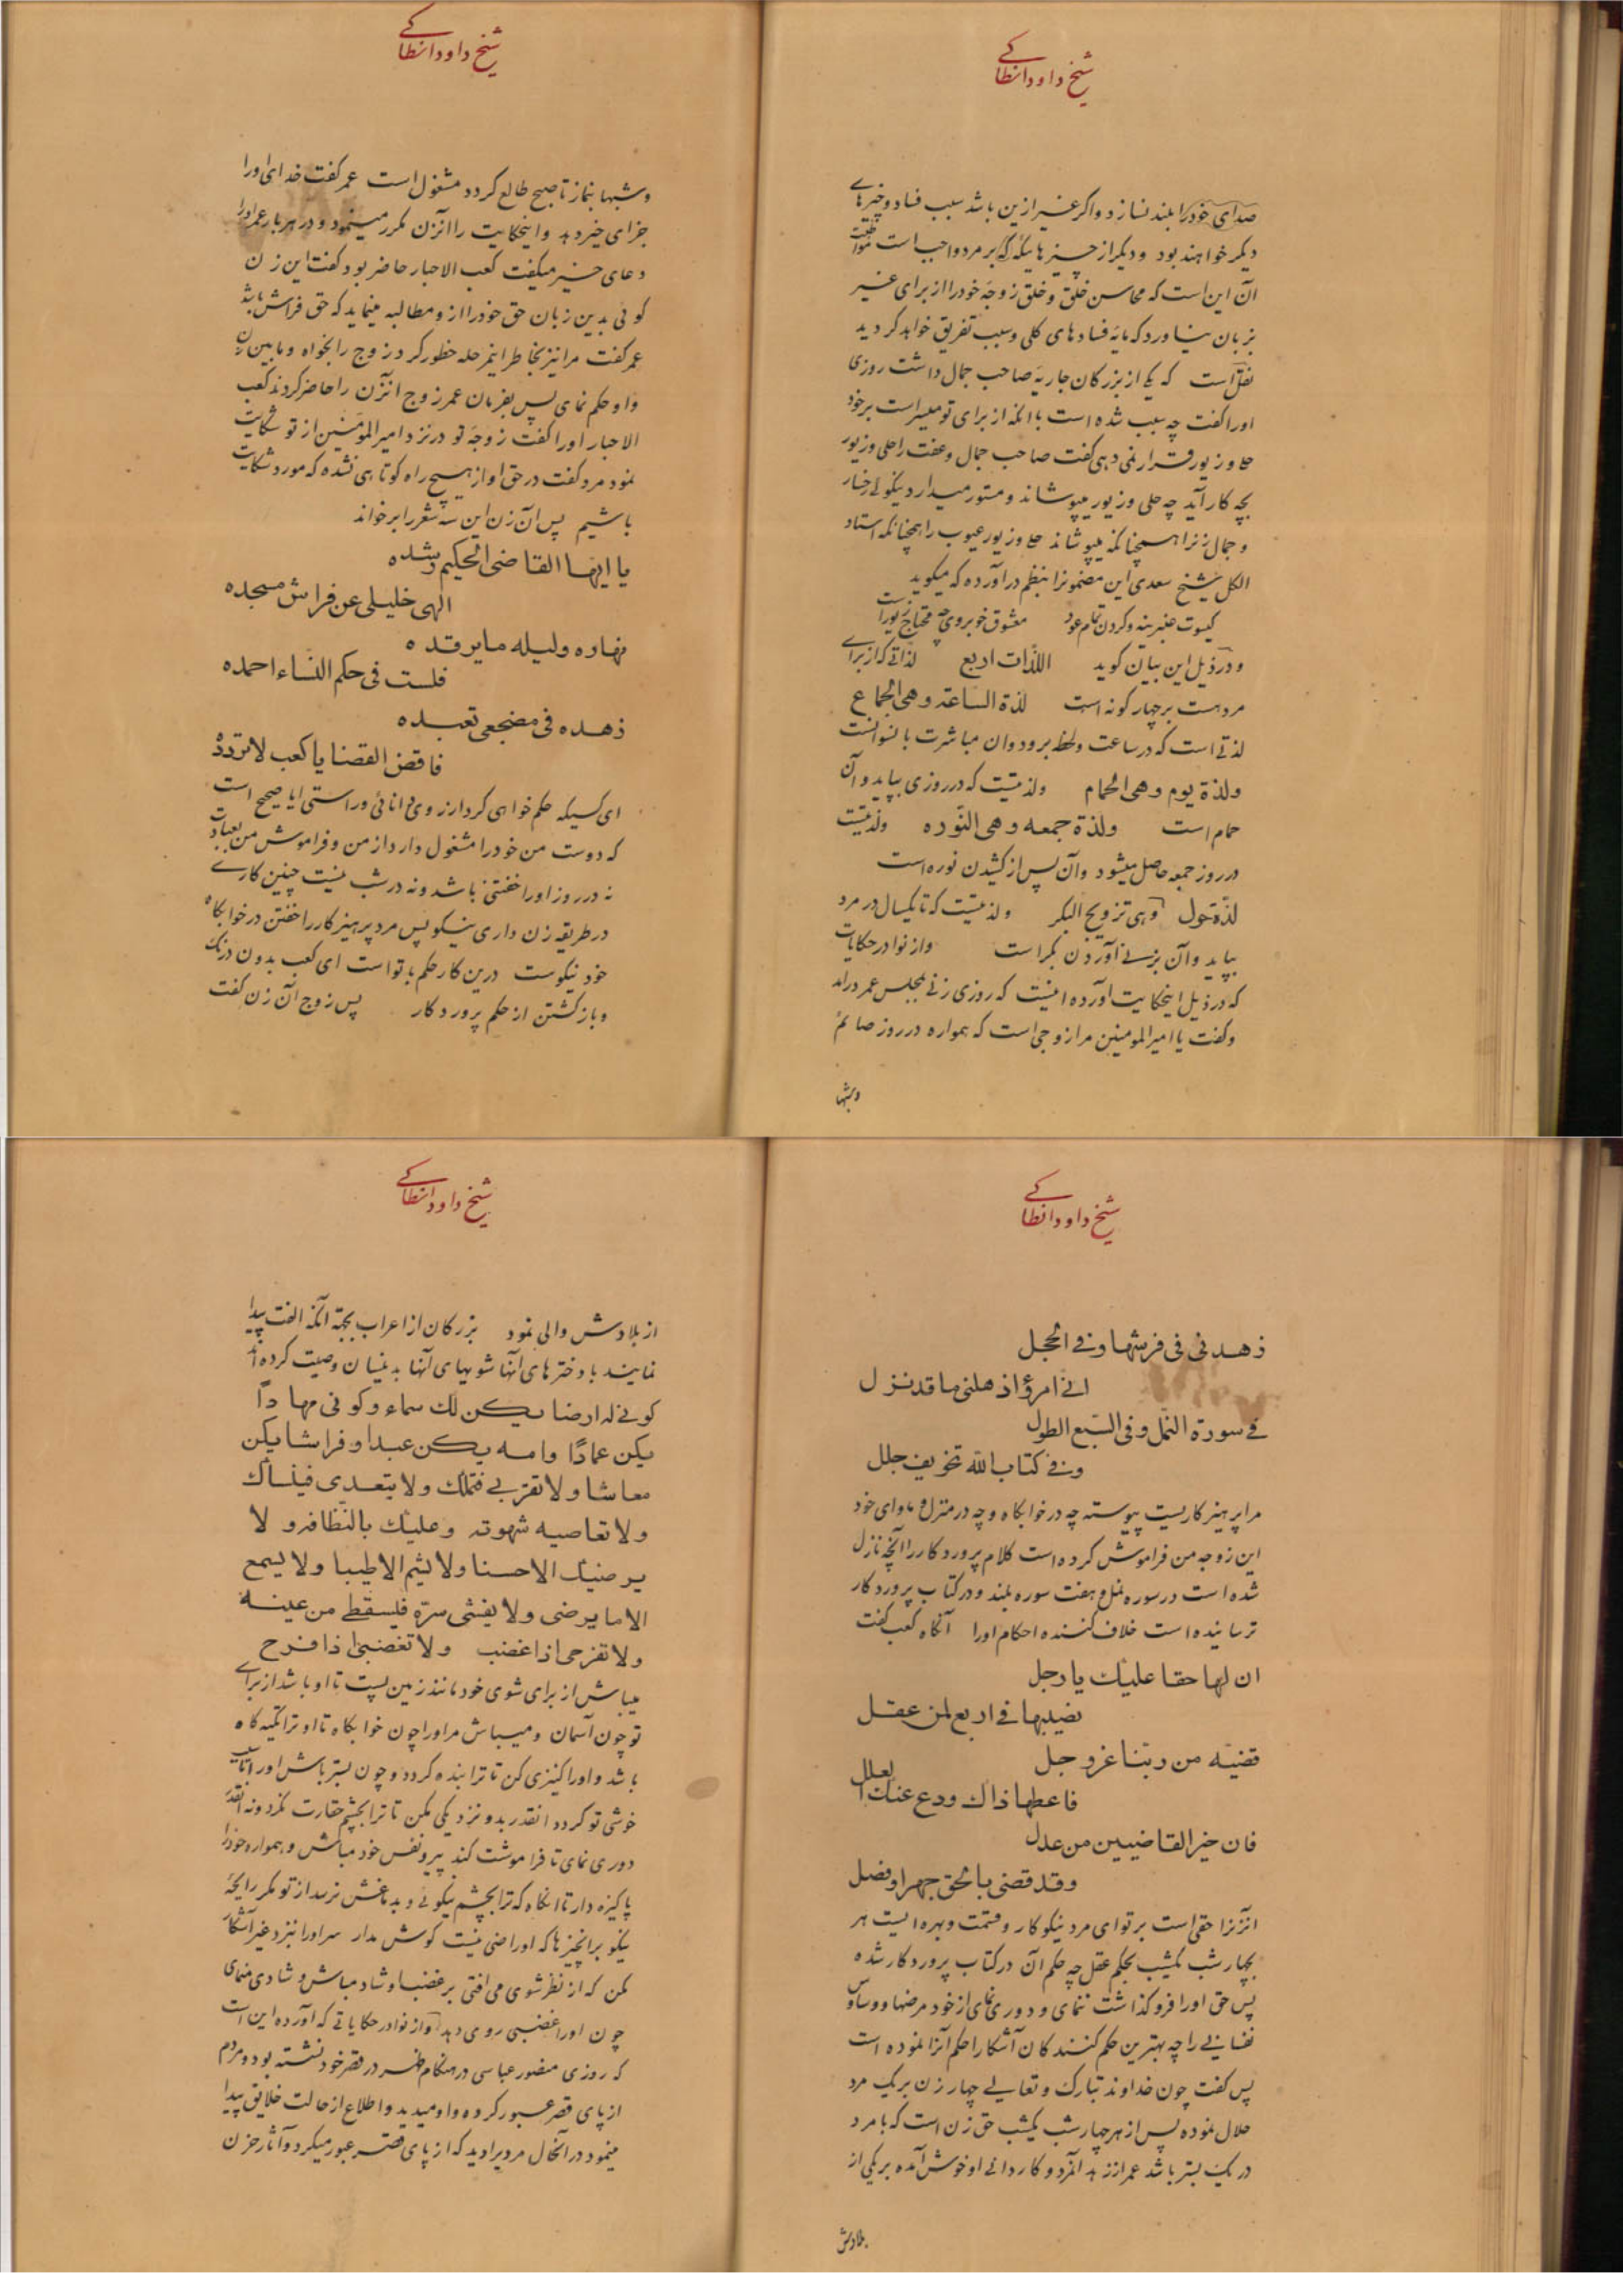 شیخ داود انطاکی
صدای خود را بلند نسازد و اکر غیر ازین باشد سبب فساد و خبرهای
دیکر خواهند بود و دیکر از چیزهائیکه که بر مرد واجب است
آن این است که محاسن خلق و خلق زوجه خود را از برای غیر
بزبان نیاورد که مایه فسادهای کلی و سبب تفریق خواهد کردید
نقل است که یکی از بزرکان جاریه صاحب جمال داشت روزی
اورا کفت چه سبب شده است با انکه از برای تو میسر است بر خود
حلی و زیور قرار نمی دهی کفت صاحب جمال و عفت را حلی و زیور
بچه کار آید چه حلی و زیور میپوشاند و مستور میدارد نیکوئی رخسار
و جمال زنرا همچنانکه میپوشاند حلی و زیور عیوب را همچنانکه استاد
الکل شیخ سعدی این مضمونرا بنظم در آورده که میکوید
کیسوت عنبرینه و کردن تمام عود معشوق خوبروی چه محتاج زیور است
و در ذیل این بیان کوید اللذات اربع لذاتی که از برای
مرد هست بر چهار کونه است لذة الساعة وهی الجماع
لذتی است که در ساعت ولحظه برود وان مباشرت با نسوانست
ولذة یوم وهی الحمام ولذتیست که در روزی بپاید و آن
حمام است ولذة جمعه وهی النوره ولذتیست
در روز جمعه حاصل میشود و آن پس از کشیدن نوره است
لذة حول وهی تزویج البکر ولذتیست که تا یکسال در مرد
بپاید و آن بزنی آوردن بکر است و از نوادر حکایات
که در ذیل اینحکایت اورده اینست که روزی زنی بمجلس عمر درامد
وکفت یا امیرالمومنین مرا زوجی است که همواره در روز صائم
وشبها
شیخ داود انطاکی
وشبها بنماز تا صبح طالع کردد مشغول است عمر کفت خدای اورا
جزای خیر دهد و اینحکایت را انزن مکرر مینمود و در هر بار عمر اورا
دعای خیر میکفت کعب الاحبار حاضر بود کفت این زن
کوئی بدین زبان حق خود را ازو مطالبه مینماید که حق فراش باشد
عمر کفت مرا نیز بخاطر اینمرحله خطور کرد زوج را بخواه و مابین زن
و او حکم نمای پس بفرمان عمر زوج انزن را حاضر کردند کعب
الاحبار اورا کفت زوجه تو در نزد امیرالمومنین از تو شکایت
نمود مرد کفت در حق او از هیچ راه کوتاهی نشده که مورد شکایت
باشیم پس آن زن این سه شعر را بر خواند
یا ایها القاضی الحکیم رشده
الهی خلیلی عن فراش مسجده
نهاره ولیله ما یرقده
فلست فی حکم النساء احمده
زهده فی مضجعی تعبده
فاقض القضا یا کعب لا تردده
ای کسیکه حکم خواهی کرد از روی دانائی و راستی ایا صحیح است
که دوست من خود را مشغول دارد از من و فراموش من بعبادت
نه در روز اورا خفتنی باشد و نه در شب نیست چنین کاری
در طریقه زن داری نیکو پس مرد پرهیزکار را خفتن در خوابکاه
خود نیکوست درین کار حکم با تو است ای کعب بدون درنک
و باز کشتن از حکم پروردکار پس زوج آن زن کفت
شیخ داود انطاکی
زهدنی فی فرشها وفی الحجل
انی امرؤ اذهلنی ما قد نزل
فی سورة النمل وفی السبع الطول
وفی کتاب الله تخویف جلل
مرا پرهیزکاریست پیوسته چه در خوابکاه و چه در منزل و ماوای خود
این زوجه من فراموش کرده است کلام پروردکار را آنچه نازل
شده است در سوره نمل و هفت سوره بلند و در کتاب پروردکار
ترسانیده است خلاف کننده احکام اورا آنکاه کعب کفت
ان لها حقا علیک یا رجل
نصیبها فی اربع لمن عقل
قضیه من ربنا عز وجل
فاعطها ذاک ودع عنک العلل
فان خیر القاضیین من عدل
وقد قضی بالحق جهرا وفضل
انزنرا حقی است بر تو ای مرد نیکوکار و قسمت و بهره ایست هر
بچهار شب یکشب بحکم عقل چه حکم آن در کتاب پروردکار شده
پس حق اورا فروکذاشت ننمای و دوری نمای از خود مرضها و وساوس
نفسانی را چه بهترین حکم کنندکان آشکارا حکم آنرا نموده است
پس کفت چون خداوند تبارک و تعالی چهار زن بر یک مرد
حلال نموده پس از هر چهار شب یکشب حق زن است که با مرد
در یک بستر باشد عمر از زهد انمرد و کاردانی او خوش آمده بر یکی از
بلادش
شیخ داود انطاکی
از بلادش والی نمود بزرکان از اعراب بجهة آنکه الفت پیدا
نمایند با دخترهای آنها شویهای آنها بدینسان وصیت کرده اند
کونی له ارضا یکن لک سماء وکونی مهادا
یکن عمادا وامه یکن عبدا وفراشا یکن
معاشا ولا تقربی فتملک ولا یتعدی فینساک
ولا تعاصیه شهوته وعلیک بالنظافه ولا
یر منک الا حسنا ولا یشم الا طیبا ولا یسمع
الا ما یرضی ولا یفشی سره فیسقط من عینه
ولا تفرحی اذا غضب ولا تغضبی اذا فرح
میباش از برای شوی خود مانند زمین پست تا او باشد از برای
تو چون آسمان و میباش مر اورا چون خوابکاه تا او ترا تکیه کاه
باشد و اورا کنیزی کن تا ترا بنده کردد و چون بستر باش اورا تا
خوشی تو کردد انقدر بدو نزدیکی مکن تا ترا بچشم حقارت نکرد و نه انقدر
دوری نمای تا فراموشت کند پیرو نفس خود مباش و همواره خود را
پاکیزه دار تا انکاه که ترا بچشم نیکوئی دید بدماغش نرسد از تو مکر رایحه
نیکو بر انچیزها که اورا ضی نیست کوش مدار سر اورا بنزد غیر آشکار
مکن که از نظر شوی می افتی بر غضب او شاد مباش و شادی منمای
چون اورا غضبی روی دهد و از نوادر حکایاتی که آورده این است
که روزی منصور عباسی در هنکام ظهر در قصر خود نشسته بود و مردم
از پای قصر عبور کرده و او میدید و اطلاع از حالت خلایق پیدا
مینمود در آنحال مردیرا دید که از پای قصر عبور میکرد و آثار حزن